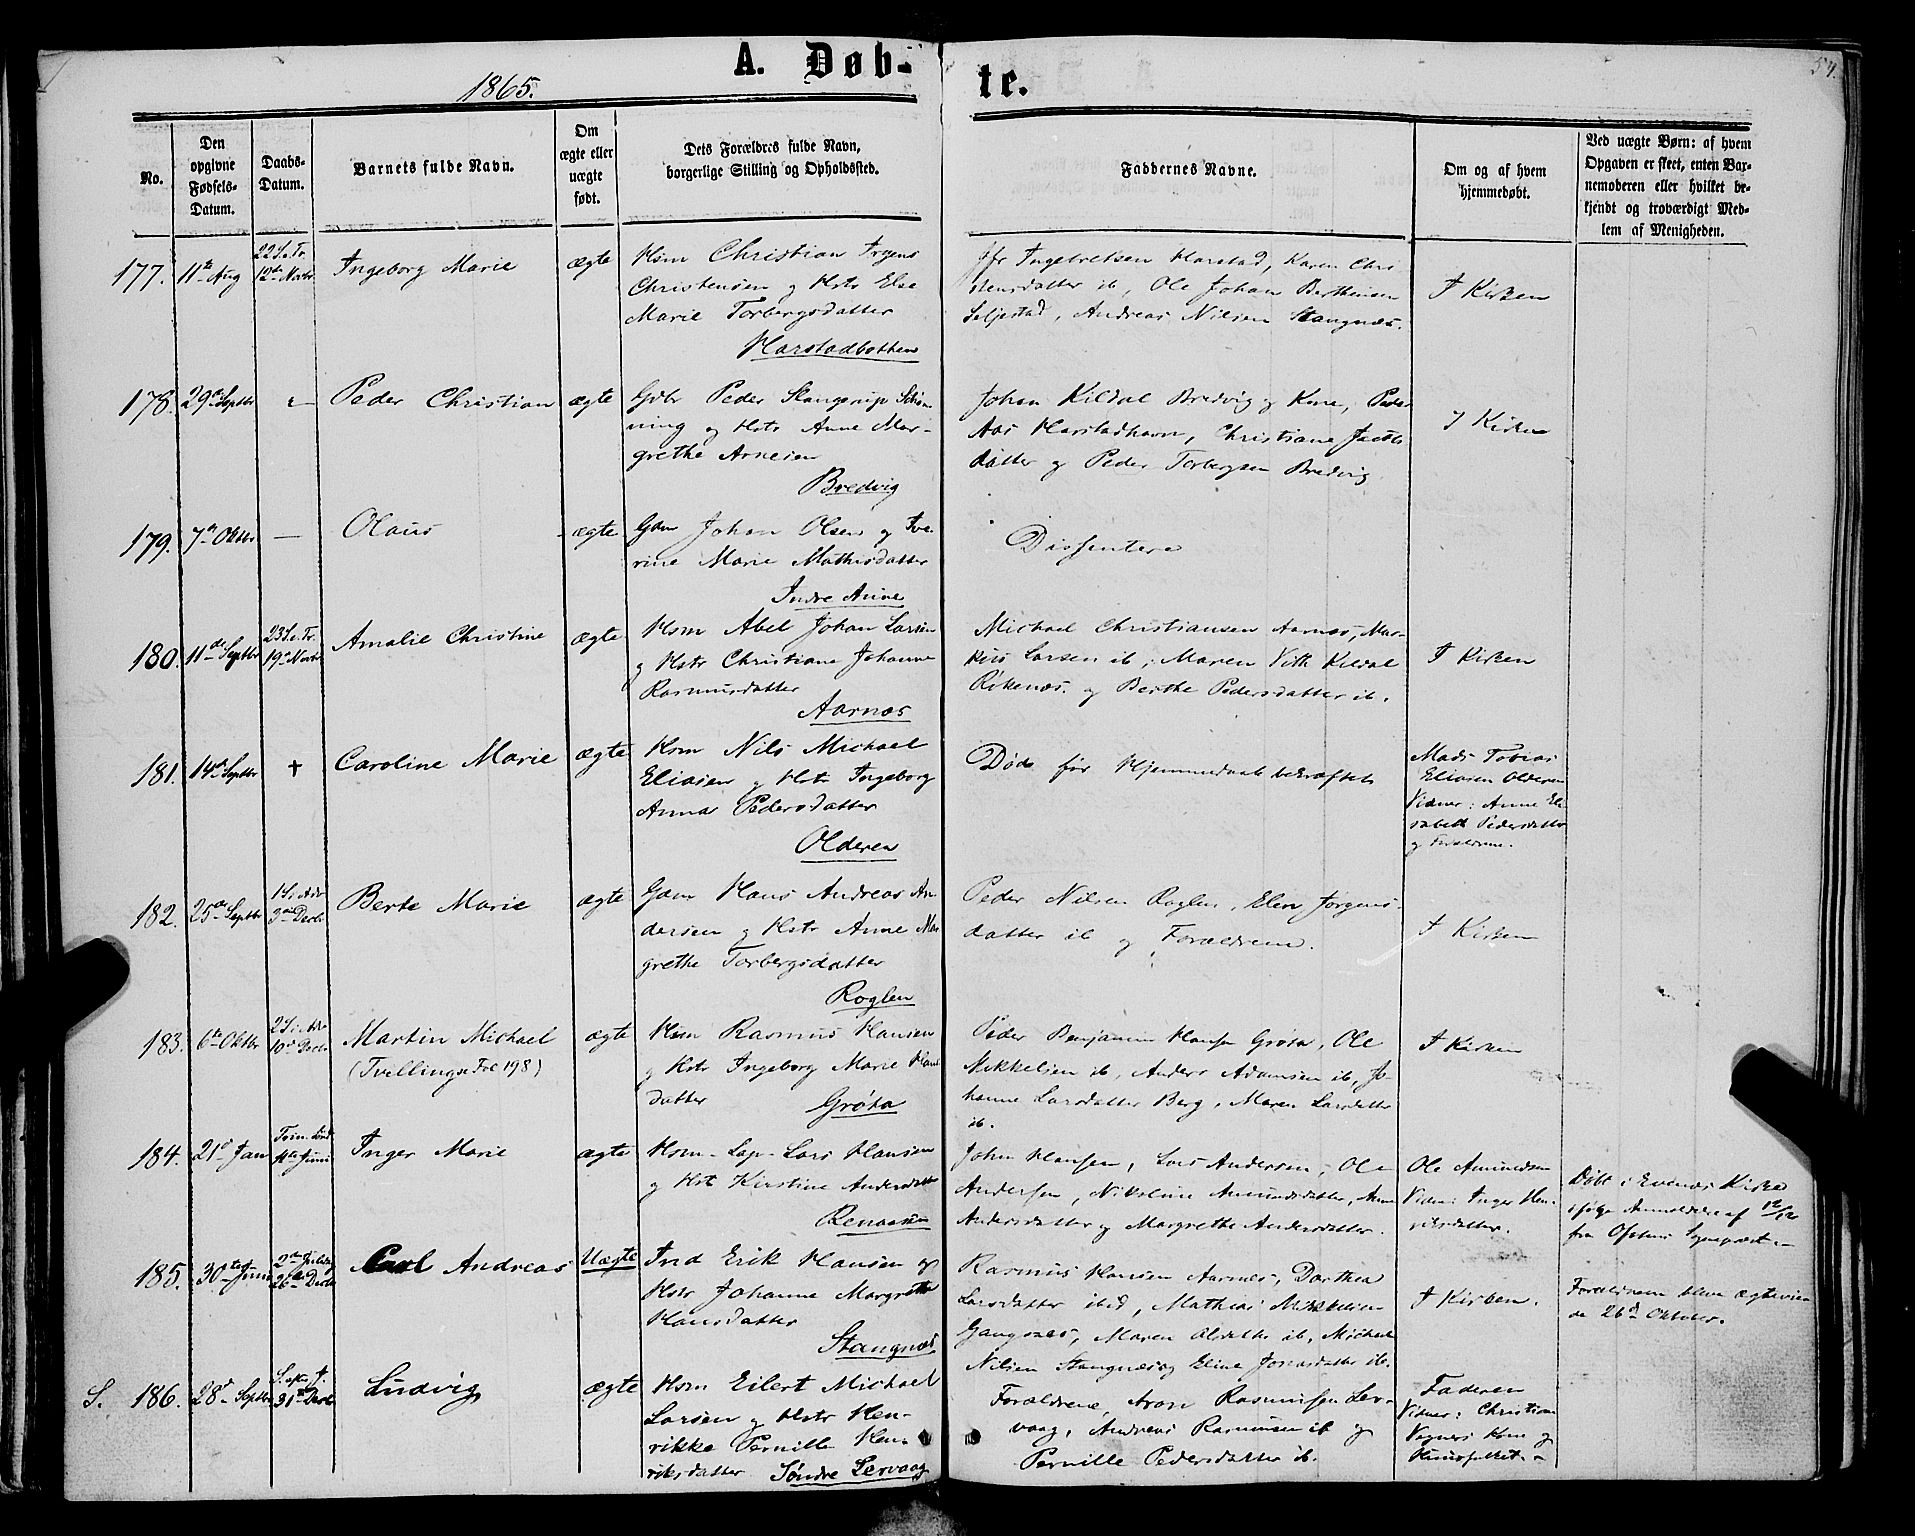 A. Døb-
te.
54.
1865.
No.
Den
opgivne
Fødsels-
Datum.
Daabs-
Datum.
Barnets fulde Navn.
Om
ægte eller
uægte
født.
Dets Forældres fulde Navn,
borgerlige Stilling og Opholdssted.
Faddernes Navne.
Om og af hvem
hjemmedøbt.
Ved uægte Børn: af hvem
Opgaven er skeet, enten Bar-
nemoderen eller hvilket be-
kjendt og troværdigt Med-
lem af Menigheden.
177.
11te Aug
22 S. e. Tr.
12te Novbr
Ingeborg Marie
ægte
Hsm Christian
Christensen og Hstr Else
Marie Torbergsdatter
Harstadbotten
Ingebretsen Harstad, Karen Chri-
stensdatter ib, Ole Johan Bertheusen
Seljestad, Andreas Nilsen Stangnes.
I Kirken
178.
29de Septbr
Peder Christian
ægte
Gdbr Peder Stangerup Schøn-
ning og Hstr Anne Mar-
grethe Arnesen
Bredvig
Johan Kildal Bredvig og Kone, Peder
Aas Harstadhavn, Christiane Jacobs
datter og Peder Torbergsen Bredvig
I Kirken
179.
7de Oktbr
—
Olaus
ægte
Gdm Johan Olsen og Ive-
rine Marie Mathisdatter
Indre Aune
Dissentere
180.
11de Septbr
23 S. e. Tr.
19de Novbr
Amalie Christine
ægte
Hsm Abel Johan Larsen
og Hstr Christiane Johanne
Rasmusdatter
Aarnæs
Michael Christiansen Aarnæs, Mar-
kus Larsen ib, Maren Vith Kildal
Røkenæs og Berthe Pedersdatter ib.
I Kirken
181.
14de Septbr
†
Caroline Marie
ægte
Hsm Nils Michael
Eliasen og Hstr Ingeborg
Anna Pedersdatter
Olderen
Døde før Hjemmedaab bekræftet
Mads Tobias
Eliasen Olderen
Vidner: Anne Eli-
sabeth Pedersdatter
og Forældrene.
182.
25de Septbr
1 S. i Adv
3die Decbr
Berte Marie
ægte
Gdm Hans Andreas An-
dersen og Hstr Anne Mar
grethe Torbergsdatter
Roglen
Peder Nilsen Roglen, Elen Jørgens-
datter ib og Forældrene.
I Kirken
183.
6te Oktbr
2 S. i Adv
10de Decbr
Martin Michael
(Tvilling se No 198)
ægte
Hsm Rasmus Hansen
og Hstr Ingeborg Marie Hans
datter
Grøta
Peder Benjamin Hansen Grøta, Ole
Mikkelsen ib, Anders Adamsen ib, Jo-
hanne Larsdatter Berg, Maren Larsdatter
ib.
I Kirken
184.
21de Jan
Trin. Sønd
11te Juni
Inger Marie
ægte
Hsm-Lap- Lars Hansen
og Hstr Kirstine Andersdatter
Renaasen
John Hansen, Lars Andersen, Ole
Andersen, Nikoline Amundsdatter, Anne
Andersdatter og Margrethe Andersdatter.
Ole Amundsen
Vidne: Inger Hen-
riksdatter.
Døbt i Evenæs Kirke
ifølge Anmeldelse af 12/12
fra Ofotens Sognepræst.
185.
30te Juni
2den Juledag
26de Decbr
Carl Andreas
Uægte
Ind Erik Hansen og
Hstr Johanne Margrethe
Hansdatter
Stangnæs
Rasmus Hansen Aarnæs, Dorthea
Larsdatter ibid, Mathias Mikkelsen
Gangsaas, Maren Olsdatter ib, Michael
Nilsen Stangnæs og Eline Jonasdatter ib.
I Kirken.
Forældrene bleve ægteviede
26de Oktober.
S.
186.
28de Septbr
31te Decbr
Ludvig
ægte
Hsm Eilert Michael
Larsen og Hstr Hen-
rikke Pernille Hen-
riksdatter Søndre Lervaag
Forældrene, Aron Rasmusen Ler-
vaag, Andreas Rasmusen ib og
Pernille Pedersdatter ib.
Faderen
Vidner: Christian
Vagners Kone og
Huusfolket.